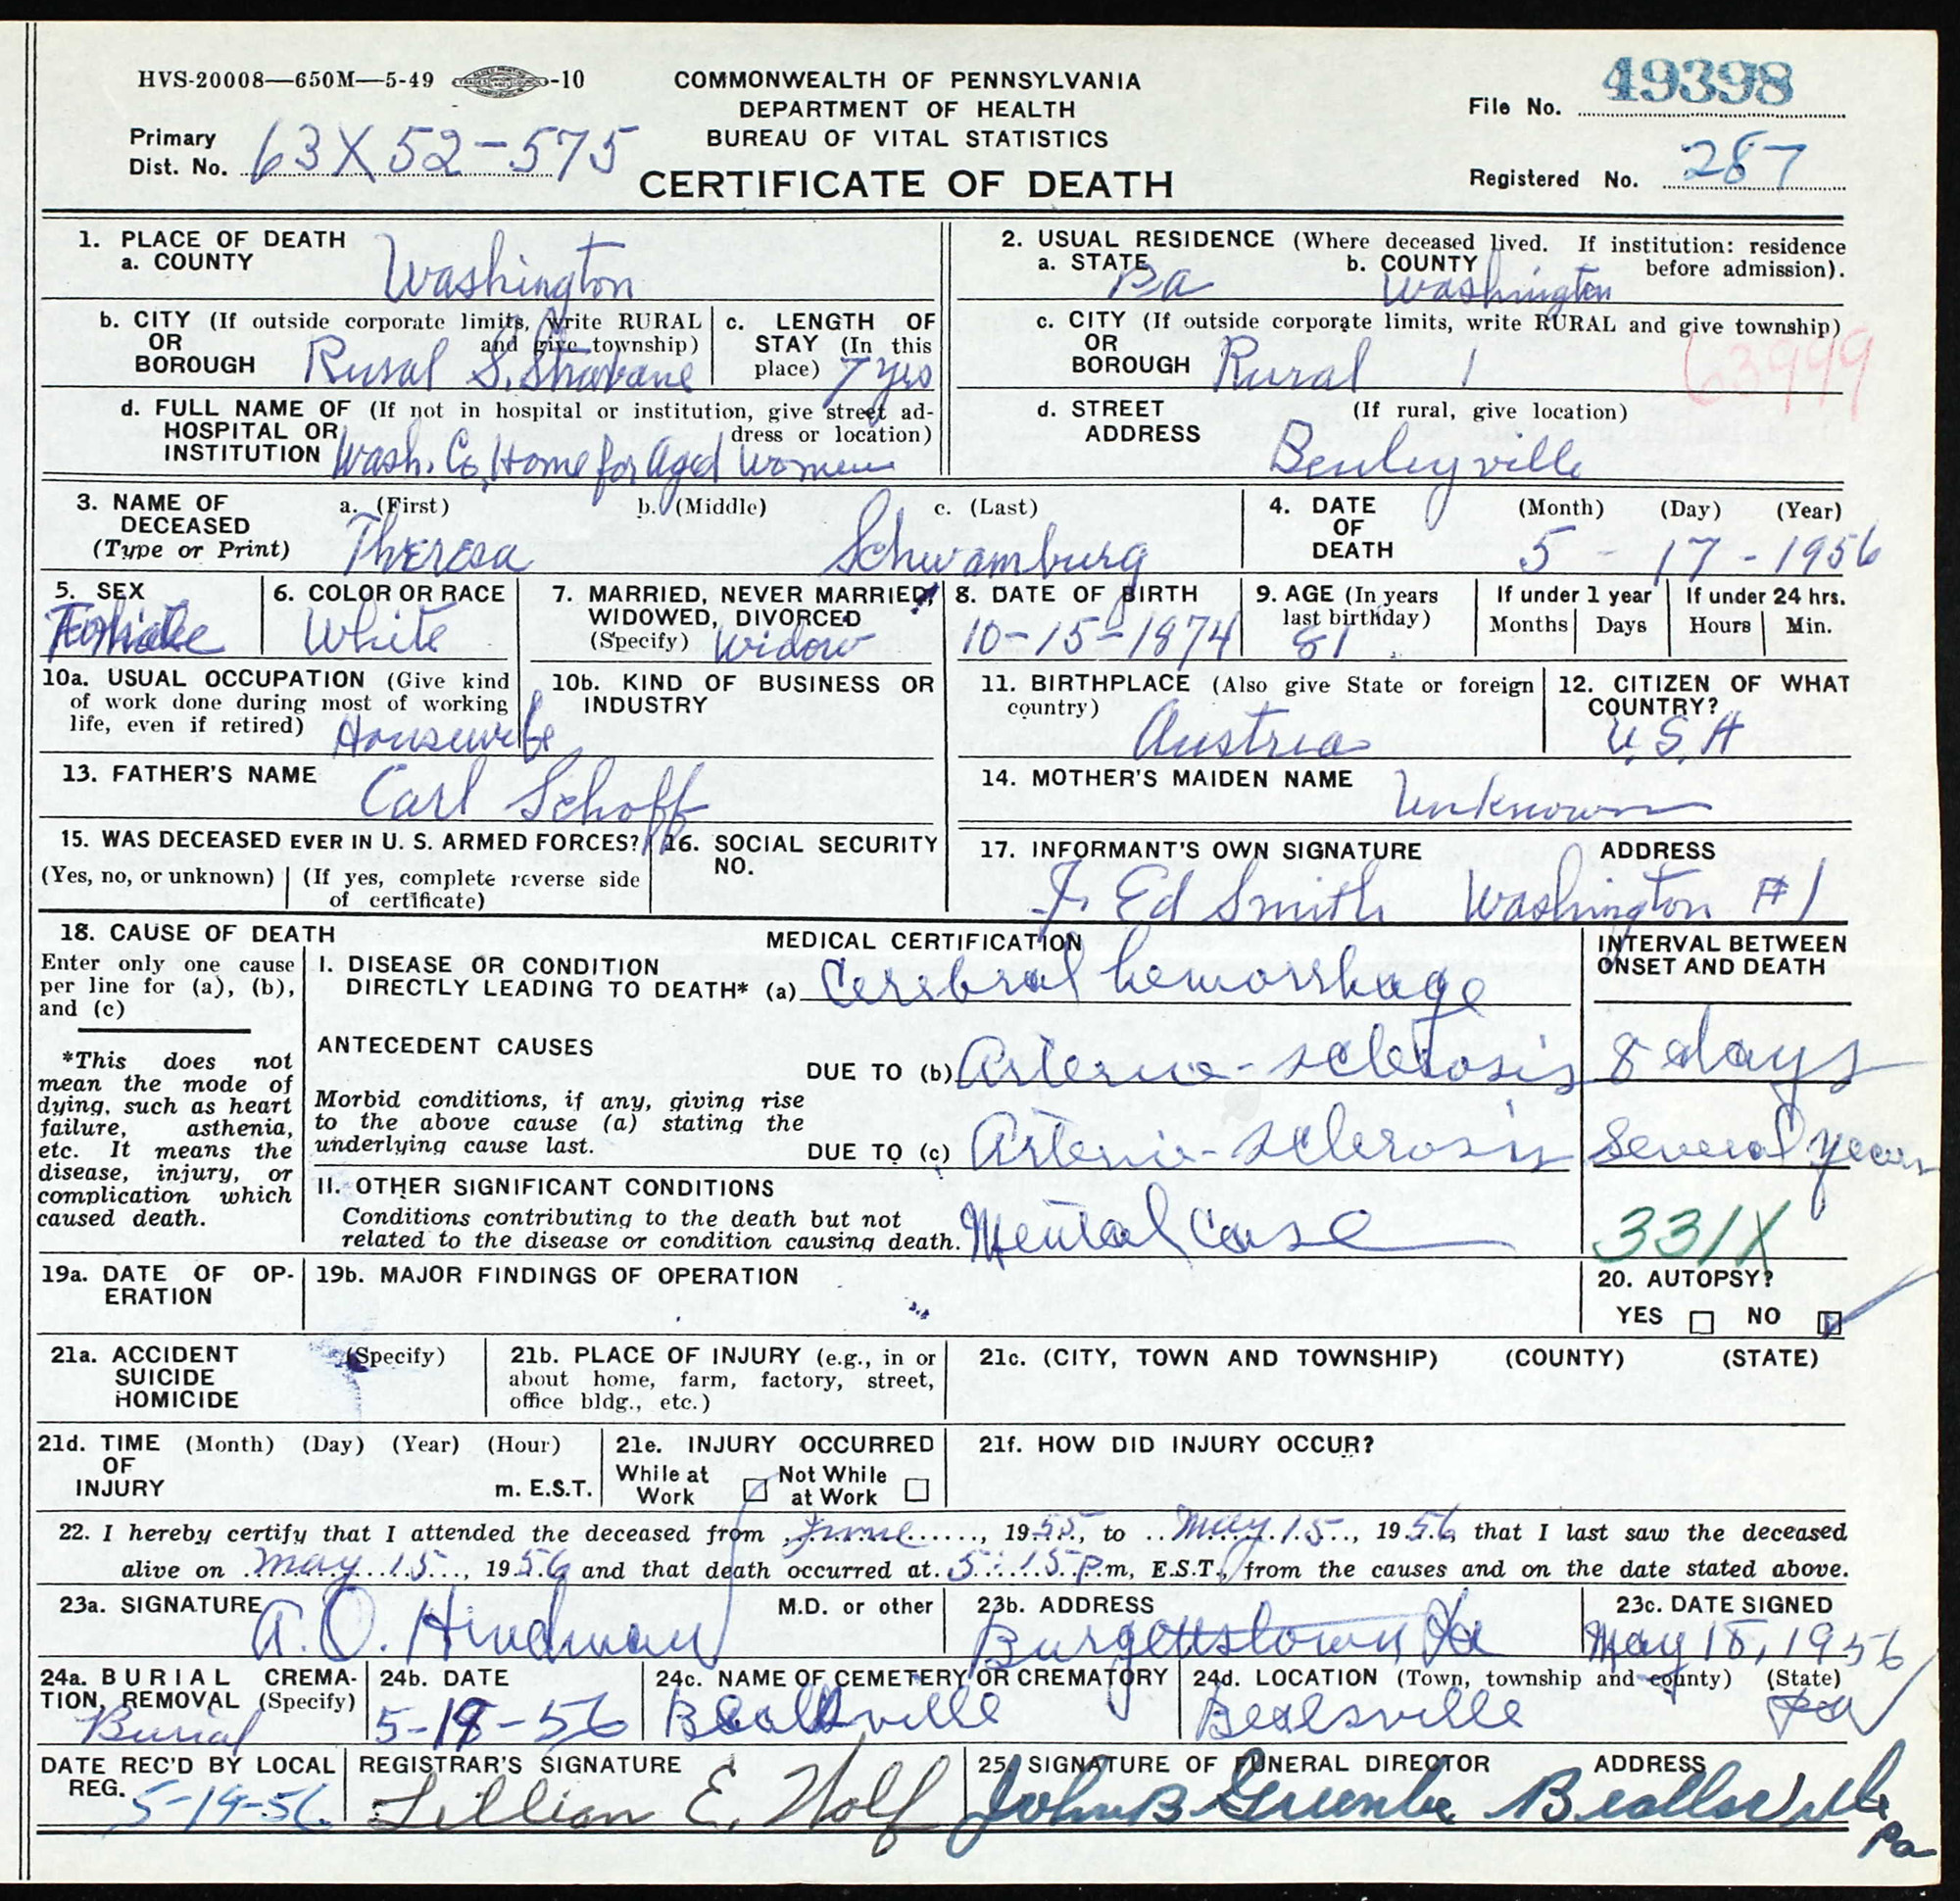 HVS-20008—650M—5-49 -10
COMMONWEALTH OF PENNSYLVANIA
DEPARTMENT OF HEALTH
BUREAU OF VITAL STATISTICS
CERTIFICATE OF DEATH
File No. 49398
Primary
Dist. No. 63X52-575
Registered No. 287
1. PLACE OF DEATH
a. COUNTY Washington
2. USUAL RESIDENCE (Where deceased lived. If institution: residence before admission).
a. STATE Pa b. COUNTY Washington
b. CITY (If outside corporate limits, write RURAL and give township)
OR
BOROUGH Rural S. Strabane
c. LENGTH OF STAY (In this place) 7 yrs
c. CITY (If outside corporate limits, write RURAL and give township)
OR
BOROUGH Rural 1
63999
d. FULL NAME OF (If not in hospital or institution, give street address or location)
HOSPITAL OR
INSTITUTION Wash. Co. Home for Aged Women
d. STREET (If rural, give location)
ADDRESS
3. NAME OF DECEASED (Type or Print)
a. (First) b. (Middle) c. (Last)
Theresa Schwamburg
4. DATE OF DEATH (Month) (Day) (Year)
5 - 17 - 1956
5. SEX
6. COLOR OR RACE
White
7. MARRIED, NEVER MARRIED, WIDOWED, DIVORCED (Specify) Widow
8. DATE OF BIRTH
10-15-1874
9. AGE (In years last birthday)
81
If under 1 year
Months Days
If under 24 hrs.
Hours Min.
10a. USUAL OCCUPATION (Give kind of work done during most of working life, even if retired) Housewife
10b. KIND OF BUSINESS OR INDUSTRY
11. BIRTHPLACE (Also give State or foreign country)
Austria
12. CITIZEN OF WHAT COUNTRY?
U.S.A
13. FATHER'S NAME Carl Schoff
14. MOTHER'S MAIDEN NAME Unknown
15. WAS DECEASED EVER IN U. S. ARMED FORCES?
(Yes, no, or unknown) (If yes, complete reverse side of certificate)
16. SOCIAL SECURITY NO.
17. INFORMANT'S OWN SIGNATURE ADDRESS
Ed Smith Washington #1
18. CAUSE OF DEATH
Enter only one cause per line for (a), (b), and (c)
*This does not mean the mode of dying, such as heart failure, asthenia, etc. It means the disease, injury, or complication which caused death.
MEDICAL CERTIFICATION
INTERVAL BETWEEN ONSET AND DEATH
I. DISEASE OR CONDITION
DIRECTLY LEADING TO DEATH* (a) Cerebral hemorrhage
ANTECEDENT CAUSES
Morbid conditions, if any, giving rise to the above cause (a) stating the underlying cause last.
DUE TO (b) Arterio-sclerosis 8 days
DUE TO (c) Arterio-sclerosis Several years
II. OTHER SIGNIFICANT CONDITIONS
Conditions contributing to the death but not related to the disease or condition causing death. Mental Case
331X
19a. DATE OF OPERATION
19b. MAJOR FINDINGS OF OPERATION
20. AUTOPSY?
YES NO
21a. ACCIDENT SUICIDE HOMICIDE (Specify)
21b. PLACE OF INJURY (e.g., in or about home, farm, factory, street, office bldg., etc.)
21c. (CITY, TOWN AND TOWNSHIP) (COUNTY) (STATE)
21d. TIME OF INJURY (Month) (Day) (Year) (Hour)
m. E.S.T.
21e. INJURY OCCURRED
While at Work Not While at Work
21f. HOW DID INJURY OCCUR?
22. I hereby certify that I attended the deceased from June, 1955, to May 15, 1956, that I last saw the deceased
alive on May 15, 1956 and that death occurred at 5:15 p.m, E.S.T., from the causes and on the date stated above.
23a. SIGNATURE M.D. or other
A. O. Hindman
23b. ADDRESS
Burgettstown Pa
23c. DATE SIGNED
May 18, 1956
24a. BURIAL CREMATION, REMOVAL (Specify)
Burial
24b. DATE
5-19-56
24c. NAME OF CEMETERY OR CREMATORY
Beallsville
24d. LOCATION (Town, township and county) (State)
Bealsville Pa
DATE REC'D BY LOCAL REG. 5-19-56
REGISTRAR'S SIGNATURE
Lillian E.
25. SIGNATURE OF FUNERAL DIRECTOR ADDRESS
John B Beallsville Pa